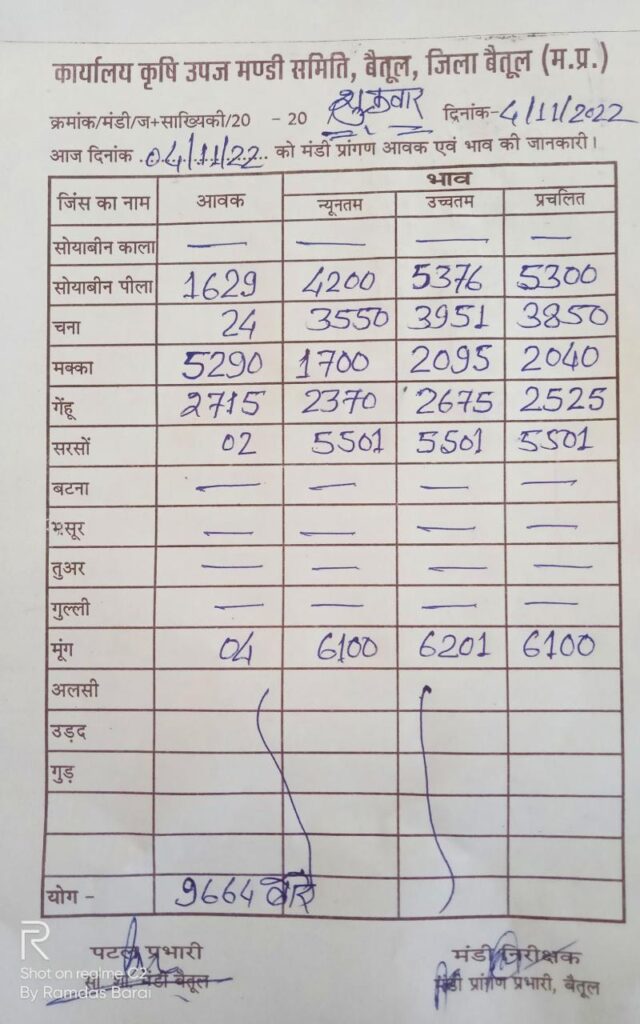 कार्यालय कृषि उपज मण्डी समिति, बैतूल, जिला बैतूल (म.प्र.)
क्रमांक/मंडी/ज+साख्यिकी/20 - 20 शुक्रवार दिनांक-4/11/2022
आज दिनांक 04/11/22 को मंडी प्रांगण आवक एवं भाव की जानकारी।
जिंस का नाम आवक भाव
न्यूनतम उच्चतम प्रचलित
सोयाबीन काला — — — —
सोयाबीन पीला 1629 4200 5376 5300
चना 24 3550 3951 3850
मक्का 5290 1700 2095 2040
गेंहू 2715 2370 2675 2525
सरसों 02 5501 5501 5501
बटना — — — —
मसूर — — — —
तुअर — — — —
गुल्ली — — — —
मूंग 04 6100 6201 6100
अलसी
उड़द
गुड़
योग - 9664
पटल प्रभारी मंडी निरीक्षक
मंडी बैतूल मंडी प्रांगण प्रभारी, बैतूल
R
Shot on realme C2
By Ramdas Barai